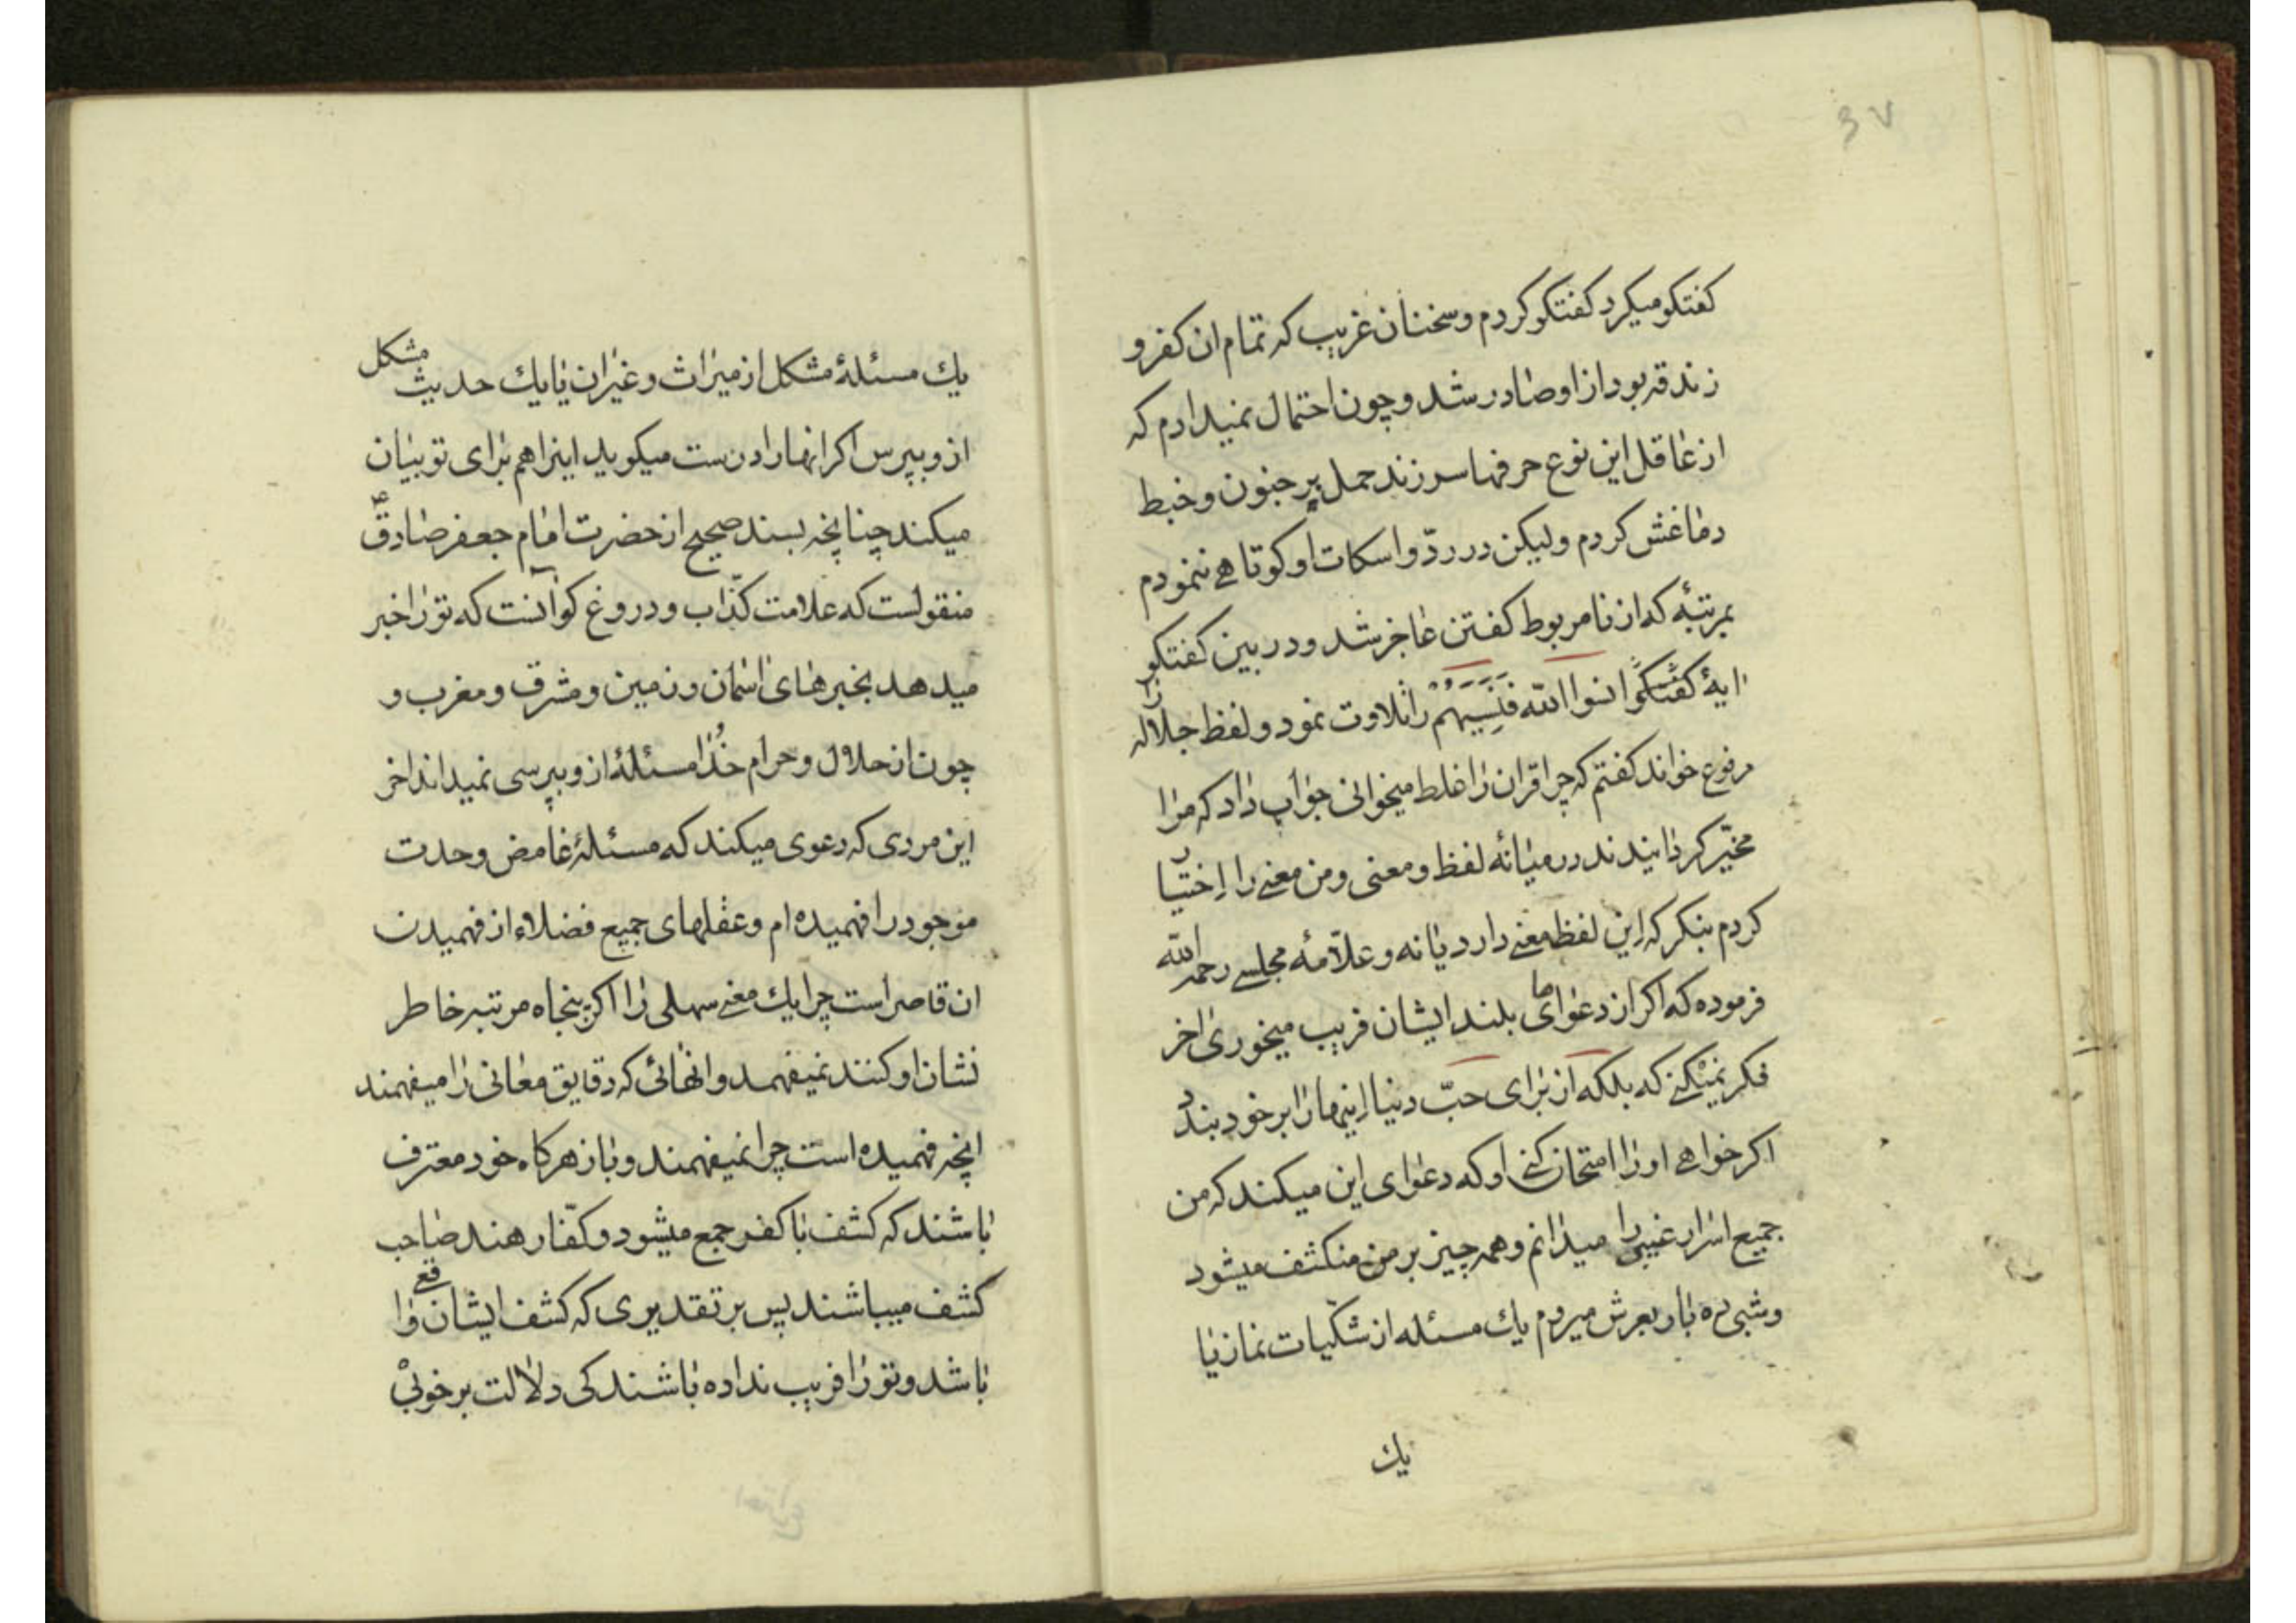 ۳۷
کفتکو میکرد کفتکو کردم و سخنان غریب که تمام ان کفر و
زندقه بود از او صادر شد و چون احتمال نمیدادم که
از عاقل این نوع حرفها سر زند حمل بر جنون و خبط
دماغش کردم ولیکن در ردّ و اسکات او کوتاهی ننمودم
بمرتبهٔ که از نامربوط کفتن عاجز شد و در بین کفتکو
ایهٔ نسوا الله فنسیهم را تلاوت نمود و لفظ جلاله را
مرفوع خواند کفتم که چرا قران را غلط میخوانی جواب داد که مرا
مخیّر کردانیدند در میانهٔ لفظ و معنی و من معنی را اختیار
کردم بنکر که این لفظ معنی دارد یا نه و علّامهٔ مجلسی رحمه الله
فرموده که اکر از دعواهای بلند ایشان فریب میخوری اخر
فکر نمیکنی که بلکه از برای حبّ دنیا اینها را بر خود بندد
اکر خواهی او را امتحان کنی او که دعوای این میکند که من
جمیع اسرار غیبی را میدانم و همه چیز بر من منکشف میشود
و شبی ده بار بعرش میروم یك مسئله از شکّیات نماز یا
یك
یك مسئلهٔ مشکل از میراث و غیر ان یا یك حدیث مشکل
از و بپرس اکر انها را درست میکوید اینرا هم برای تو بیان
میکند چنانچه بسند صحیح از حضرت امام جعفر صادق ع
منقولست که علامت کذّاب و دروغ کو آنست که تو را خبر
میدهد بخبرهای اسمان و زمین و مشرق و مغرب و
چون از حلال و حرام خدا مسئلهٔ از و بپرسی نمیداند اخر
این مردی که دعوی میکند که مسئلهٔ غامض وحدت
موجود را فهمیده ام و عقلهای جمیع فضلاء از فهمیدن
ان قاصر است چرا یك معنی سهلی را اکر پنجاه مرتبه خاطر
نشان او کنند نمیفهمد و انهائی که دقایق معانی را میفهمند
انچه فهمیده است چرا نمیفهمند و باز هرکاه خود معترف
باشند که کشف با کفر جمع میشود و کفّار هند صاحب
کشف میباشند پس بر تقدیری که کشف ایشان واقع
باشد و تو را فریب نداده باشند کی دلالت بر خوبی